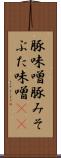 豚味噌豚みそ
ぶた味噌